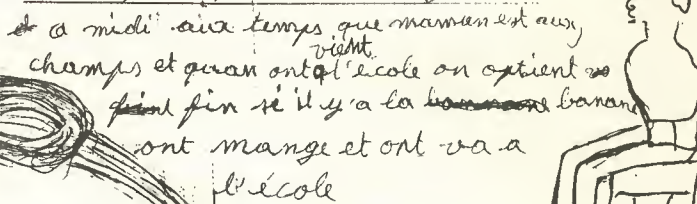 et a midi aux temps que maman est aux
champs et quan ont vient l'école on optient
fin sé il y'a la banane
ont mange et ont va a
l'école